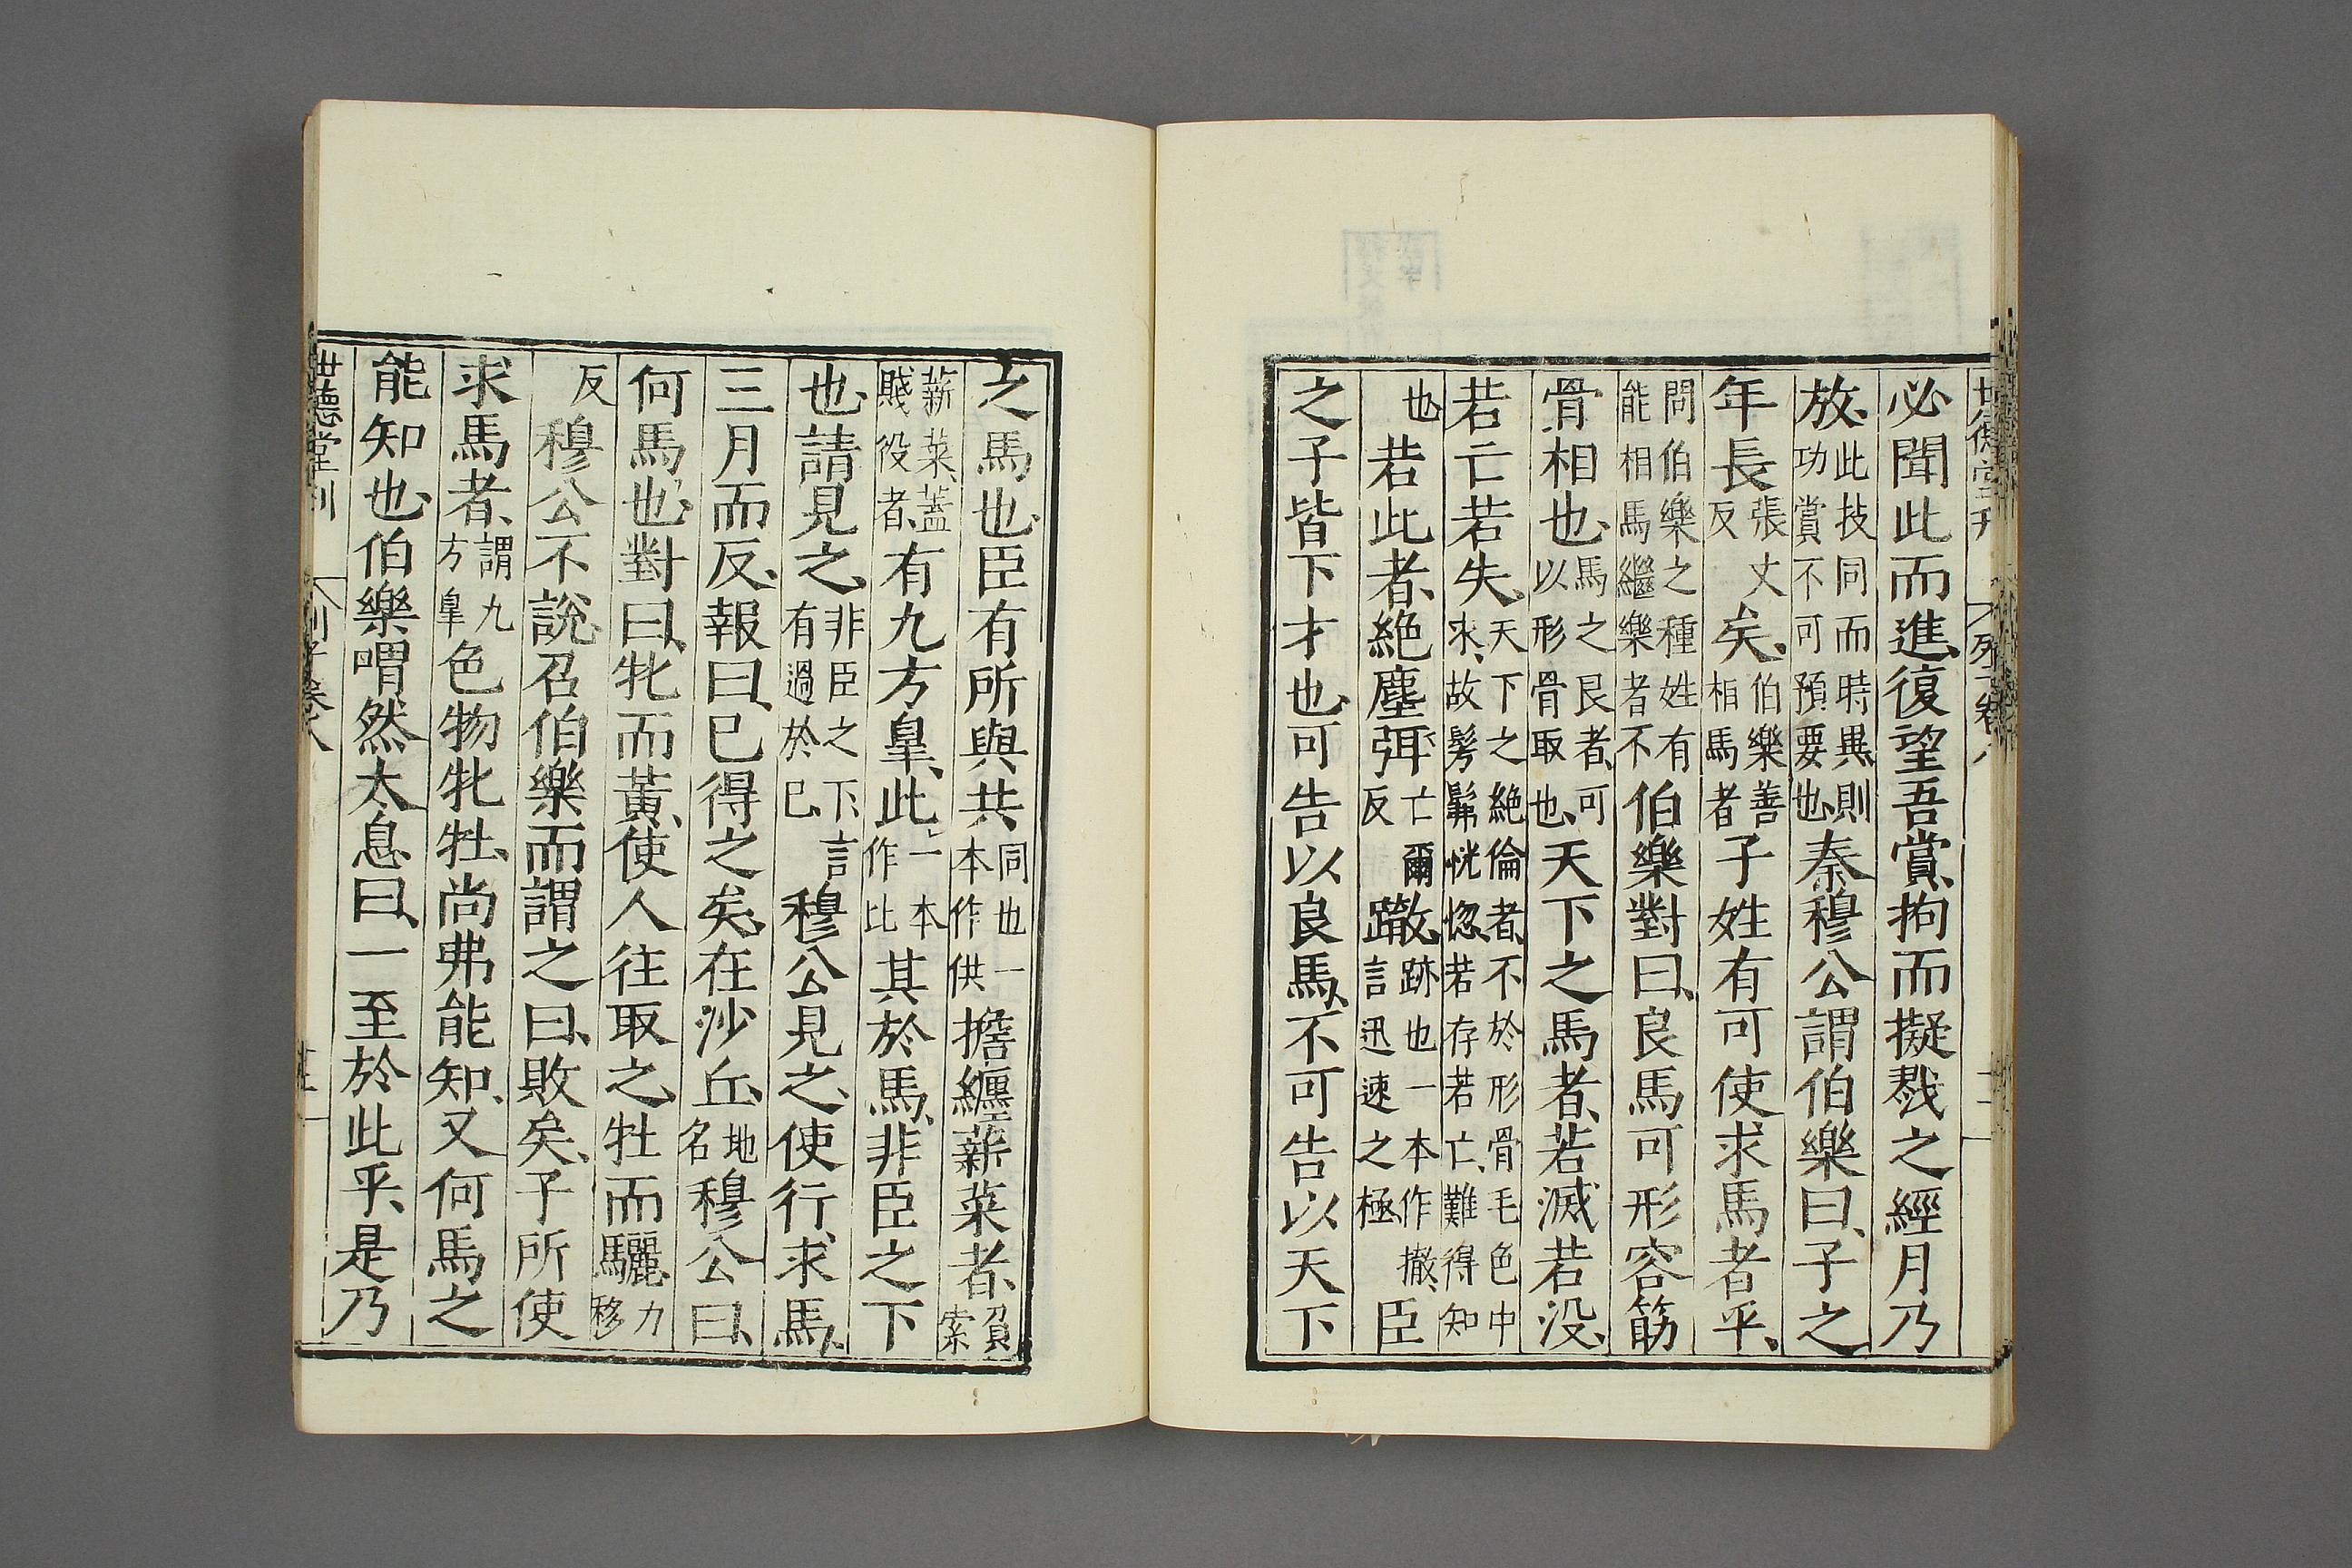 必聞此而進、復望吾賞、拘而擬戮之、經月乃
放、此技同而時異、則功賞不可預要也、秦穆公謂伯樂曰、子之
年長張丈反矣、伯樂善相馬者子姓有可使求馬者乎、
問伯樂之種姓有能相馬繼樂者不伯樂對曰、良馬可形容筋
骨相也、馬之良者、可以形骨取也、天下之馬者、若滅若没、
若亡若失、天下之絶倫者、不於形骨毛色中求、故髣髴恍惚、若存若亡、難得知
也若此者、絶塵弭亡爾反𨅊、跡也一本作撤、言迅速之極臣
之子皆下才也、可告以良馬、不可告以天下
之馬也、臣有所與共同也一本作供擔纆薪菜者、負索
薪菜、蓋賤役者、有九方皐、此一本作比其於馬、非臣之下
也、請見之、非臣之下、言有過於己穆公見之、使行求馬、
三月而反、報曰、已得之矣、在沙丘、地名穆公曰、
何馬也、對曰、牝而黃、使人往取之、牡而驪、力移
反穆公不說、召伯樂而謂之曰、敗矣、子所使
求馬者、謂九方皐色物牝牡、尚弗能知、又何馬之
能知也、伯樂喟然太息曰、一至於此乎、是乃
世德堂刊 列子卷八